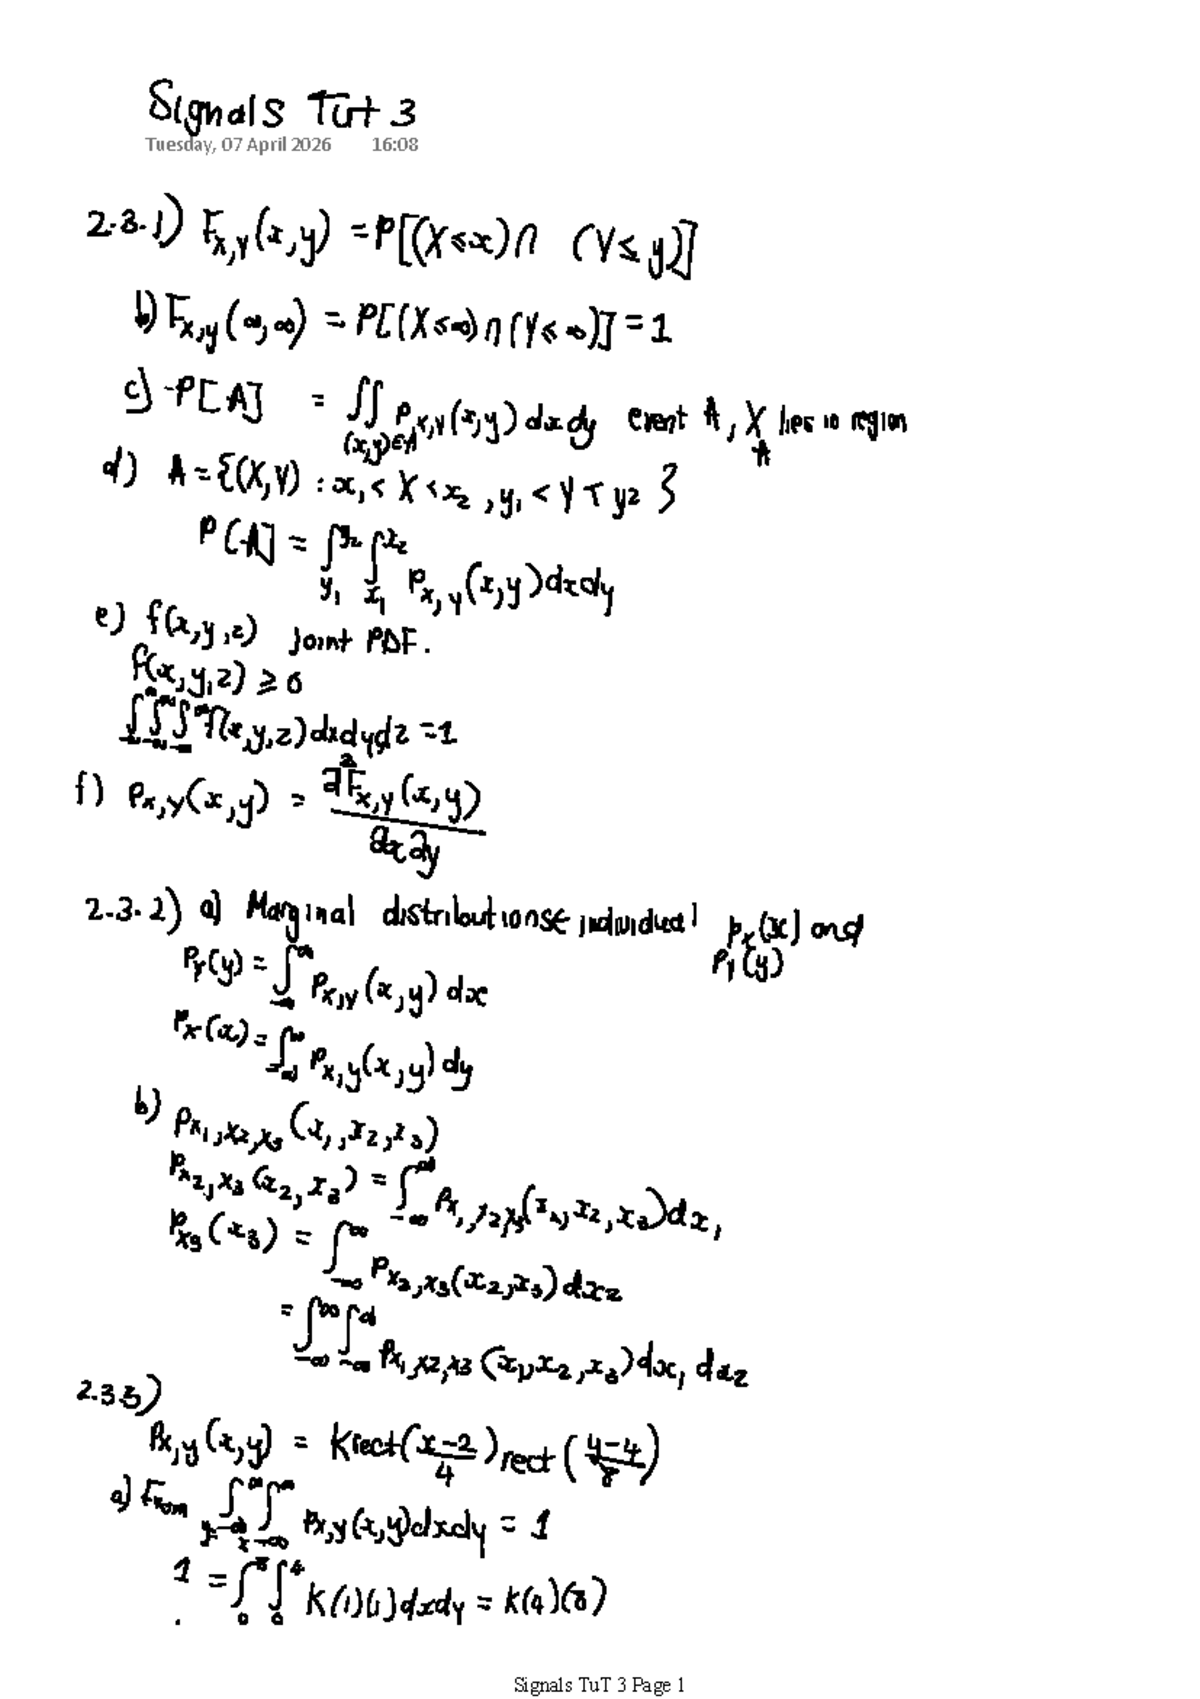 Signals Tut 3
Tuesday, 07 April 2026 16:08
2.3.1) F_{X,Y}(x,y) = P[(X≤x)∩ (Y≤y)]
b) F_{X,Y}(∞,∞) = P[(X≤∞)∩(Y≤∞)] = 1
c) P[A] = ∬_{(x,y)∈A} p_{X,Y}(x,y) dxdy event A, X lies in region A
d) A = {(X,Y) : x₁ < X < x₂, y₁ < Y < y₂}
P[A] = ∫_{y₁}^{y₂} ∫_{x₁}^{x₂} p_{X,Y}(x,y)dxdy
e) f(x,y,z) joint PDF.
f(x,y,z) ≥ 0
∫_{-∞}^{∞}∫_{-∞}^{∞}∫_{-∞}^{∞} f(x,y,z)dxdydz = 1
f) p_{X,Y}(x,y) = ∂²F_{X,Y}(x,y) / ∂x∂y
2.3.2) a) Marginal distributions individual p_X(x) and p_Y(y)
p_Y(y) = ∫_{-∞}^{∞} p_{X,Y}(x,y) dx
p_X(x) = ∫_{-∞}^{∞} p_{X,Y}(x,y) dy
b) p_{X1,X2,X3}(x₁,x₂,x₃)
p_{X2,X3}(x₂,x₃) = ∫_{-∞}^{∞} p_{X1,X2,X3}(x₁,x₂,x₃)dx₁
p_{X3}(x₃) = ∫_{-∞}^{∞} p_{X2,X3}(x₂,x₃)dx₂
= ∫_{-∞}^{∞}∫_{-∞}^{∞} p_{X1,X2,X3}(x₁,x₂,x₃)dx₁ dx₂
2.3.3)
p_{X,Y}(x,y) = K rect((x-2)/4) rect((y-4)/8)
a) From ∫_{y=-∞}^{∞}∫_{x=-∞}^{∞} p_{X,Y}(x,y)dxdy = 1
1 = ∫_{0}^{8}∫_{0}^{4} K(1)(1)dxdy = K(4)(8)
Signals TuT 3 Page 1